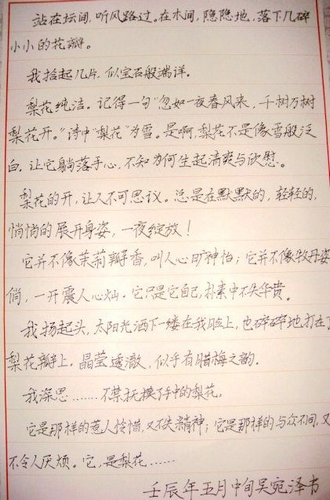 站在坛间,听风路过。在木间,隐隐地,落下几碎
小小的花瓣。
我拾起几片,似宝石般端详。
梨花纯洁。记得一句“忽如一夜春风来,千树万树
梨花开。”诗中“梨花”为雪。是啊,梨花不是像雪般泛
白。让它躺落手心,不知为何生起清爽与欣慰。
梨花的开,让人不可思议。总是在默默的,轻轻的,
悄悄的展开身姿,一夜绽放!
它并不像茉莉瓣香,叫人心旷神怡;它并不像牡丹姿
倘,一开震人心灿。它只是它自己,朴素中不失华贵。
我扬起头,太阳光洒下一缕在我脸上,也碎碎地打在了
梨花瓣上。晶莹透澈,似乎有腊梅之韵。
我深思……不禁抚摸了手中的梨花。
它是那样的惹人怜惜,又不失精神;它是那样的与众不同,又
不令人厌烦。它,是梨花……
壬辰年五月中旬吴宛泽书